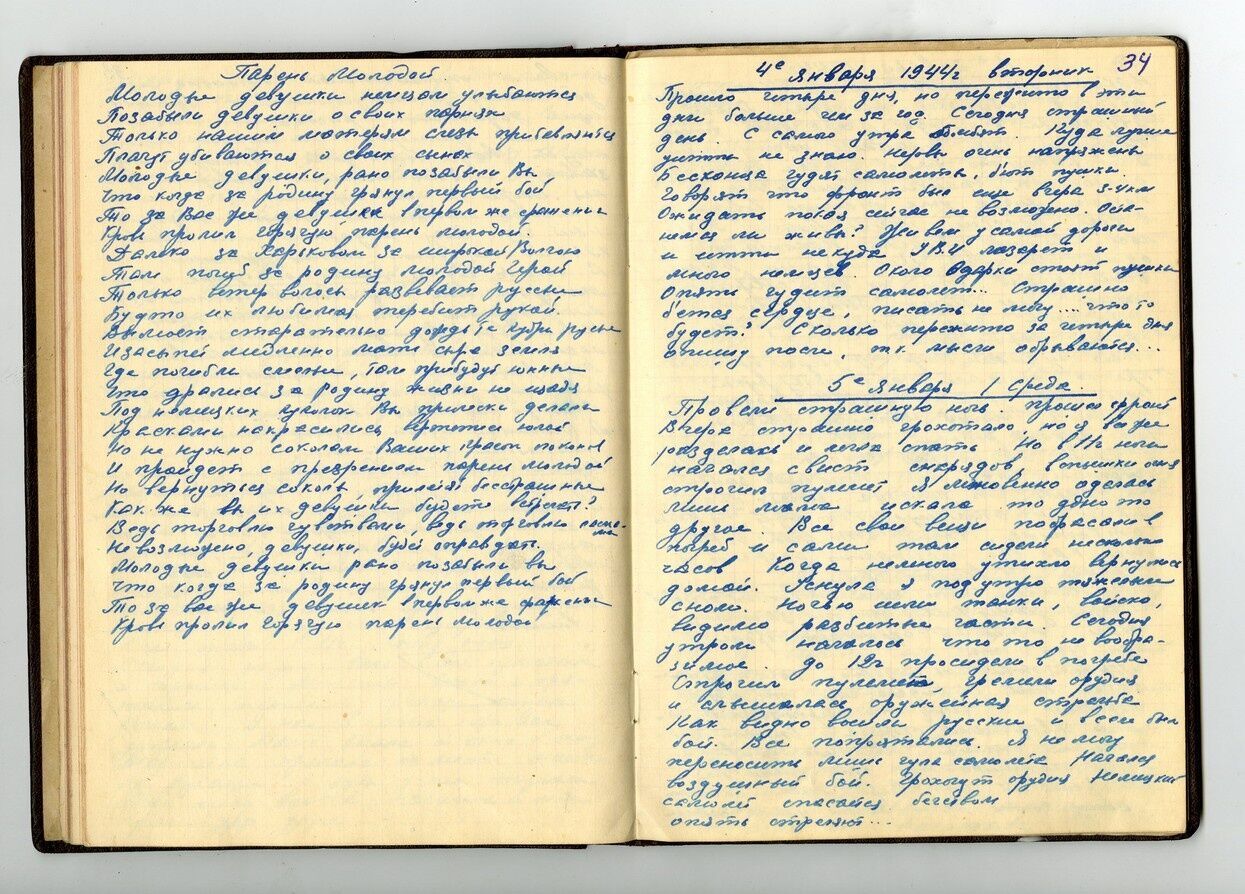 Парень Молодой.
Молодые девушки немцам улыбаются
Позабыли девушки о своих парнях
Только нашим матерям слезы прибавляются
Плачут убиваются о своих сынах
Молодые девушки, рано позабыли Вы
Что когда за родину грянул первый бой
То за Вас же девушки в первом же сражении
Кровь пролил горячую парень молодой.
Далеко за Харьковом за широкой Волгою
Там погиб за родину молодой герой
Только ветер волосы развевает русые
Будто их любимая теребит рукой.
Вымоет старательно дождь те кудри русые
И засыпет медленно мать сыра земля
Где погибли смелые, там прибудут юные
Что дрались за Родину жизни не щадя
Под немецких куколок Вы прически делали
Красками накрасились вертитесь юлой
Но не нужно соколам Ваших краск локонов
И пройдет с презрением парень молодой
Но вернуться соколы, прилетят бесстрашные
Как же вы их девушки будете встречать?
Ведь торговлю чувствами, ведь торговлю ласками
Невозможно, девушки, будет оправдать.
Молодые девушки рано позабыли вы
Что когда за родину грянул первый бой
То за вас же девушки в первом же сражении
Кровь пролил горячую парень молодой
34
4е января 1944г вторник
Прошло четыре дня, но пережито в эти
дни больше чем за год. Сегодня страшный
день. С самого утра бомбят. Куда лучше
уйти не знаю. Нервы очень напряжены
Бесконца гудят самолеты, бьют пушки.
Говорят что фронт был еще вчера 3-4 км
Ожидать покоя сейчас не возможно. Оста-
немся ли живы? Живем у самой дороги
и итти некуда. У В.И лазарет и
много немцев. Около Одарки стоят пушки
Опять гудит самолет... Страшно
бьется сердце, писать не могу .... что то
будет? Сколько пережито за четыре дня
опишу после, т.к. мысли обрываются...
5е января / среда.
Провели страшную ночь. прошел фронт
Вчера страшно грохотало, но я все же
разделась и легла спать. Но в 11ч ночи
начался свист снарядов, вспышки огня
строчил пулемет. Я мгновенно оделась
лишь мама искала то одно то
другое. Все свои вещи побросали в
погреб и сами там сидели несколько
часов. Когда немного утихло вернулись
домой. Уснула я под утро тяжелым
сном. Ночью шли танки, войско,
видимо разбитые части. Сегодня
утром началось что то не вообра-
зимое. до 12ч просидели в погребе
Строчил пулемет, гремели орудия
и слышалась оружейная стрельба
Как видно вошли русские и всеми был
бой. Все попрятались. Я не могу
переносить лишь гула самолета. Начался
воздушный бой. Грохочут орудия Немецкий
самолет спасается бегством
опять стреляют...